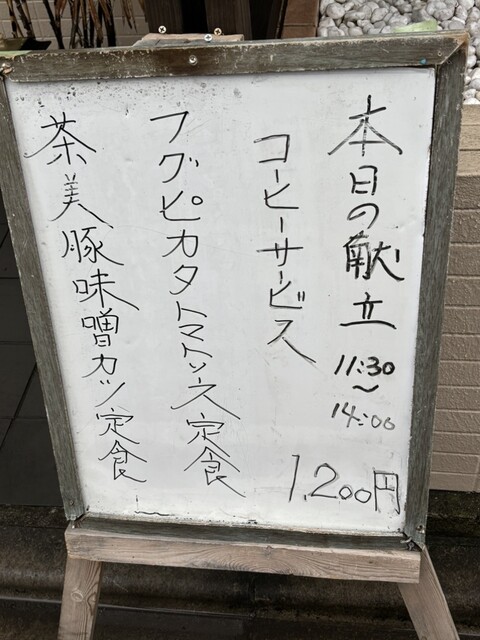 本日の献立
11:30
〜
14:00
コーヒーサービス
1,200円
フグピカタトマトソース定食
茶美豚味噌カツ定食